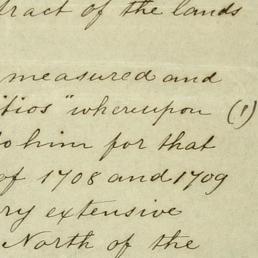 tract of the lands
measured and
itios" whereupon (1)
to him for that
of 1708 and 1709
ry extensive
North of the